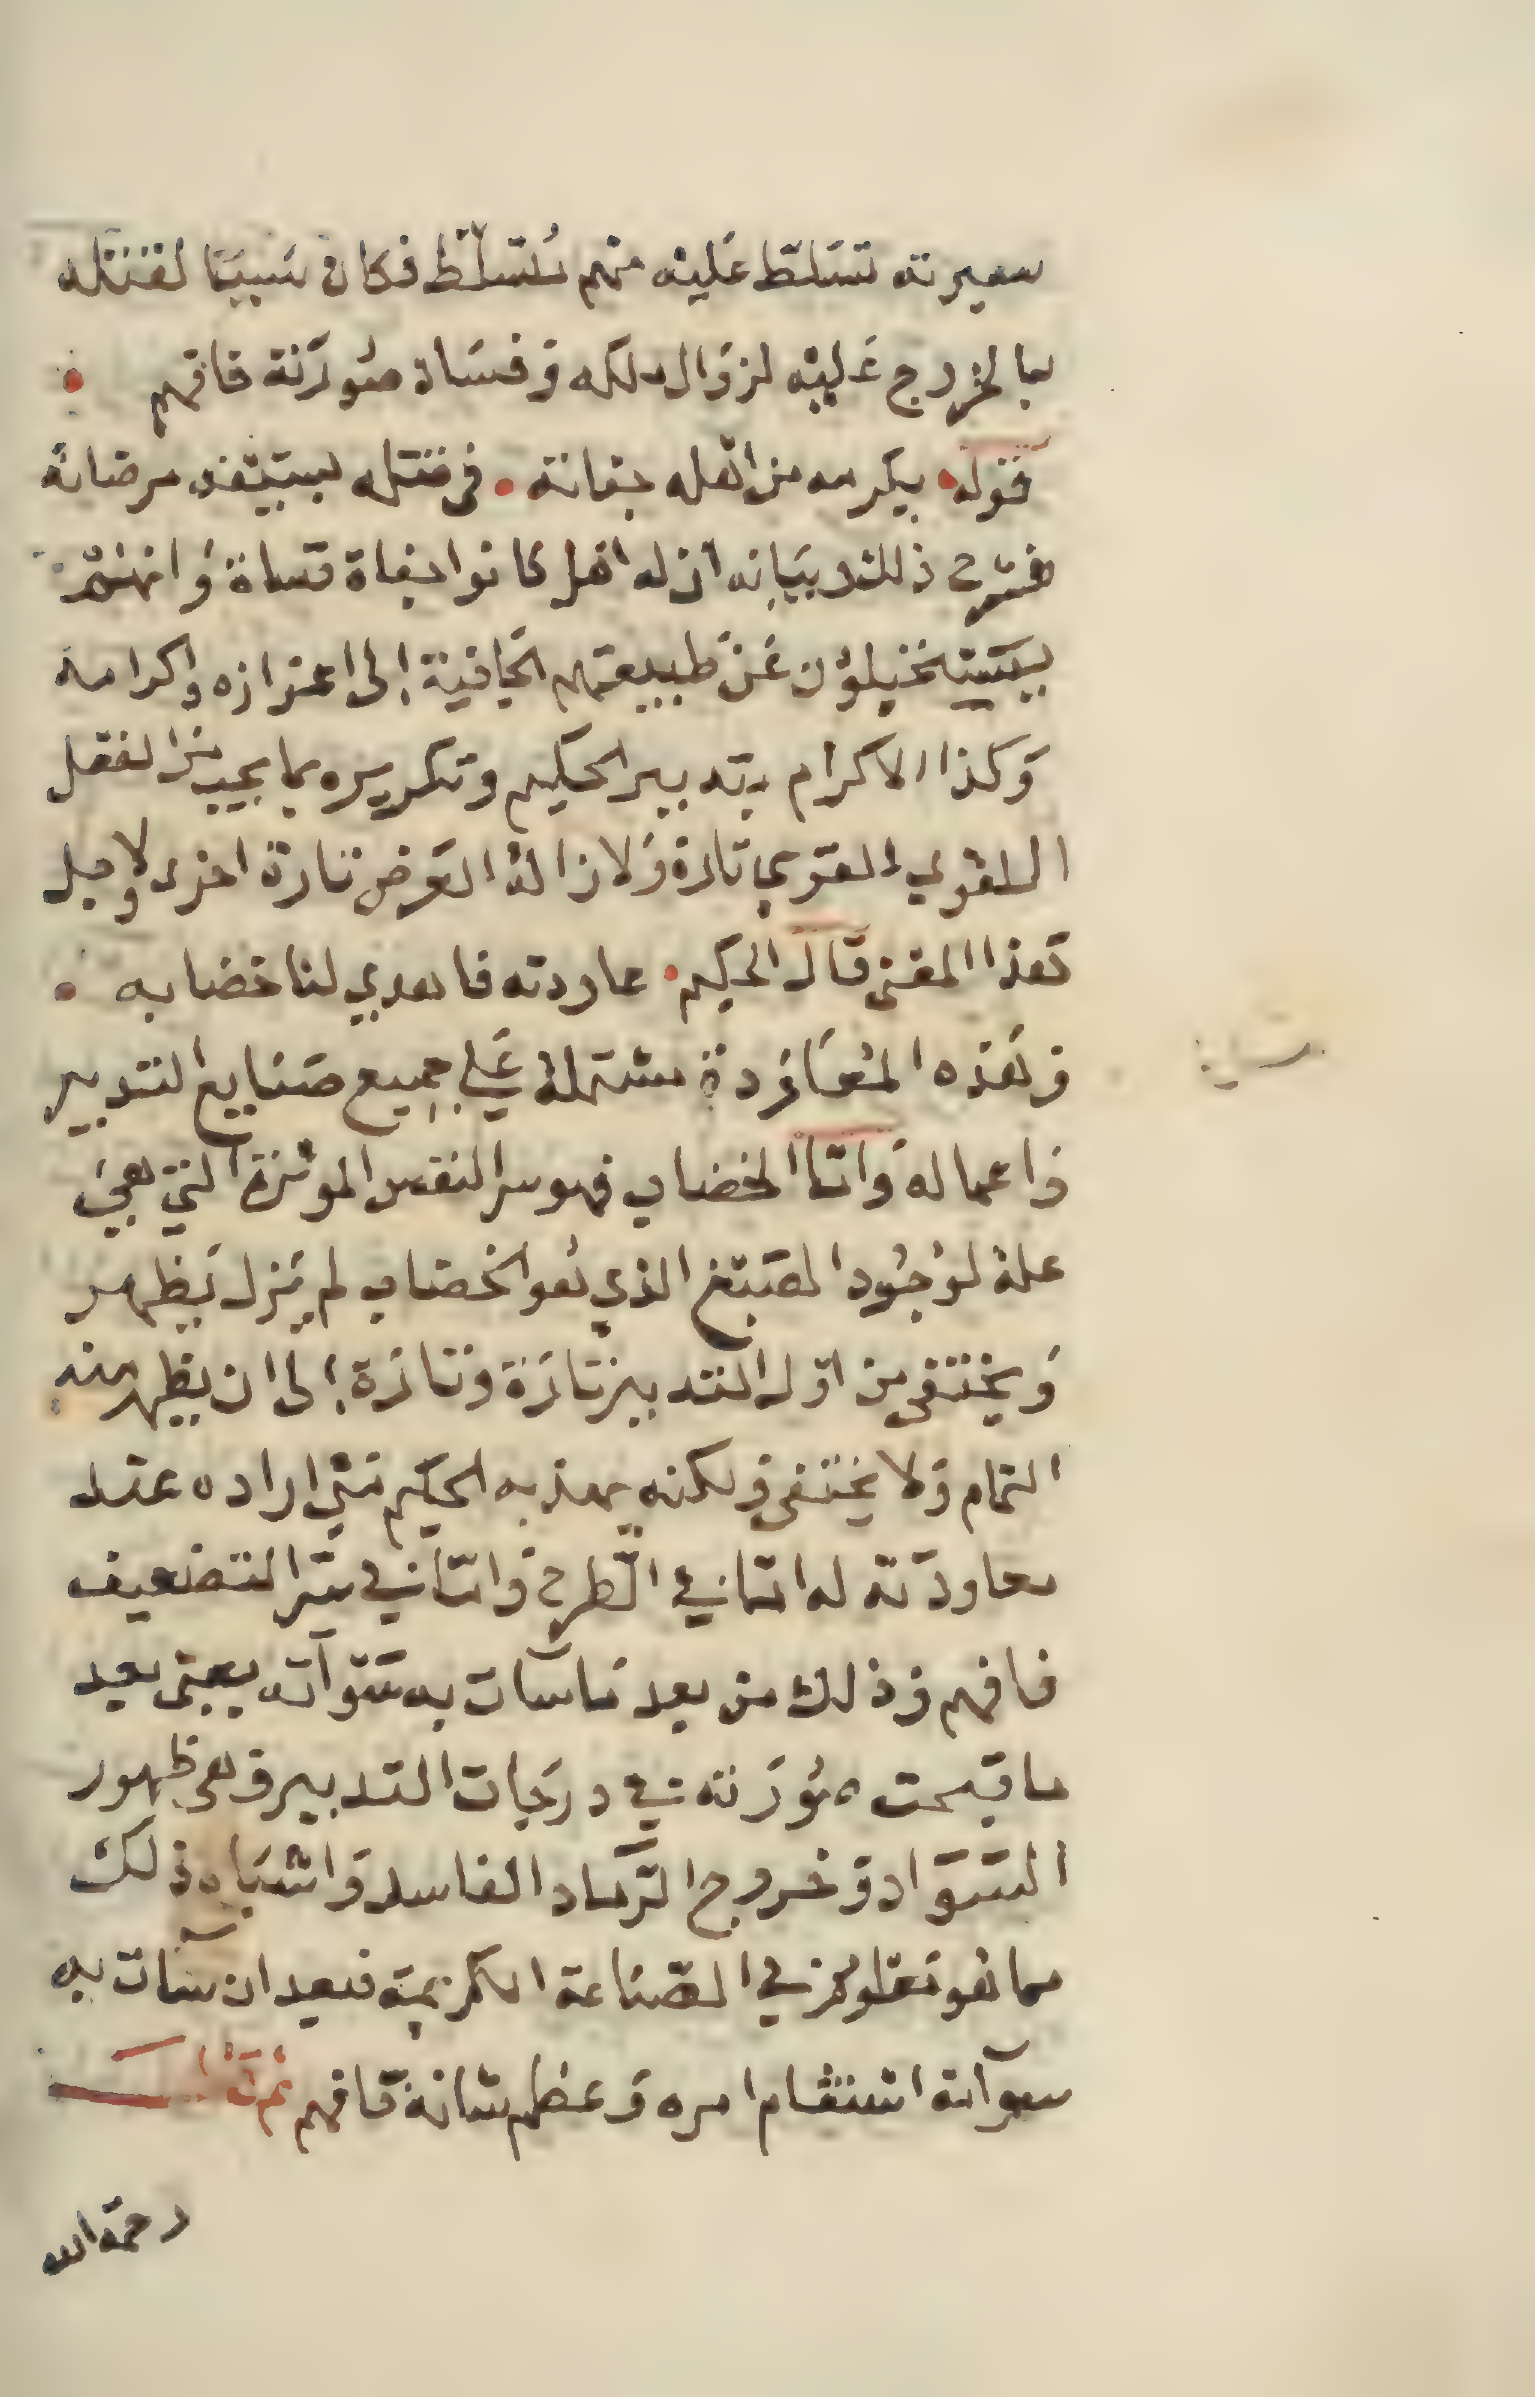 سيرته تسلط عليه منهم متسلط فكان سببا لقتله
بالخروج عليه لزوال ملكه وفساد صورته فافهم
قوله يكرمه من اهله جفاته في قتله يبتغى مرضاته
فشرح ذلك وبيانه ان له اهل كانوا جفاة قساة وانهم
يستحيلون عن طبيعتهم الجافية الى اعزازه واكرامه
وكذا الاكرام بتدبير الحكيم وتكريره بما يجب من الفعل
القوي بالقوى تارة ولازالة العرض تارة اخرى ولاجل
هذا المعنى قال الحكيم عاودته فاهدى لنا خضابه
وهذه المعاودة مشتملة على جميع صنايع التدبير
واعماله واما الخضاب فهو سر النفس الموثرة التي هي
علة لوجود الصبغ الذي هو الخضاب لم يزل يظهر
ويختفى من اول التدبير تارة وتارة الى ان يظهر منه
التمام ولا يختفى ولكنه يهذبه الحكيم متى اراده عند
معاودته له اما في الطرح واما في سر التضعيف
فافهم وذلك من بعد ما سآت به سوآته يعنى بعد
ما قبحت صورته في درجات التدبير وهى ظهور
السواد وخروج الرماد الفاسد واشباه ذلك
مما هو معلوم في الصناعة الكريمة فبعد ان سآت به
سوآته استقام امره وعظم شانه فافهم ثم قال
رحمة الله